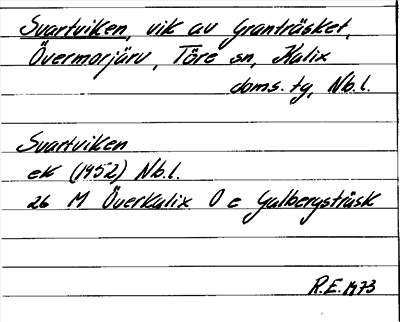 Svartviken, vik av Granträsket,
Övermorjärv, Töre sn, Kalix
doms. tg, Nb.l.
Svartviken
ek (1952) Nb.l.
26 M Överkalix O e Galbergsträsk
R.E. 1973